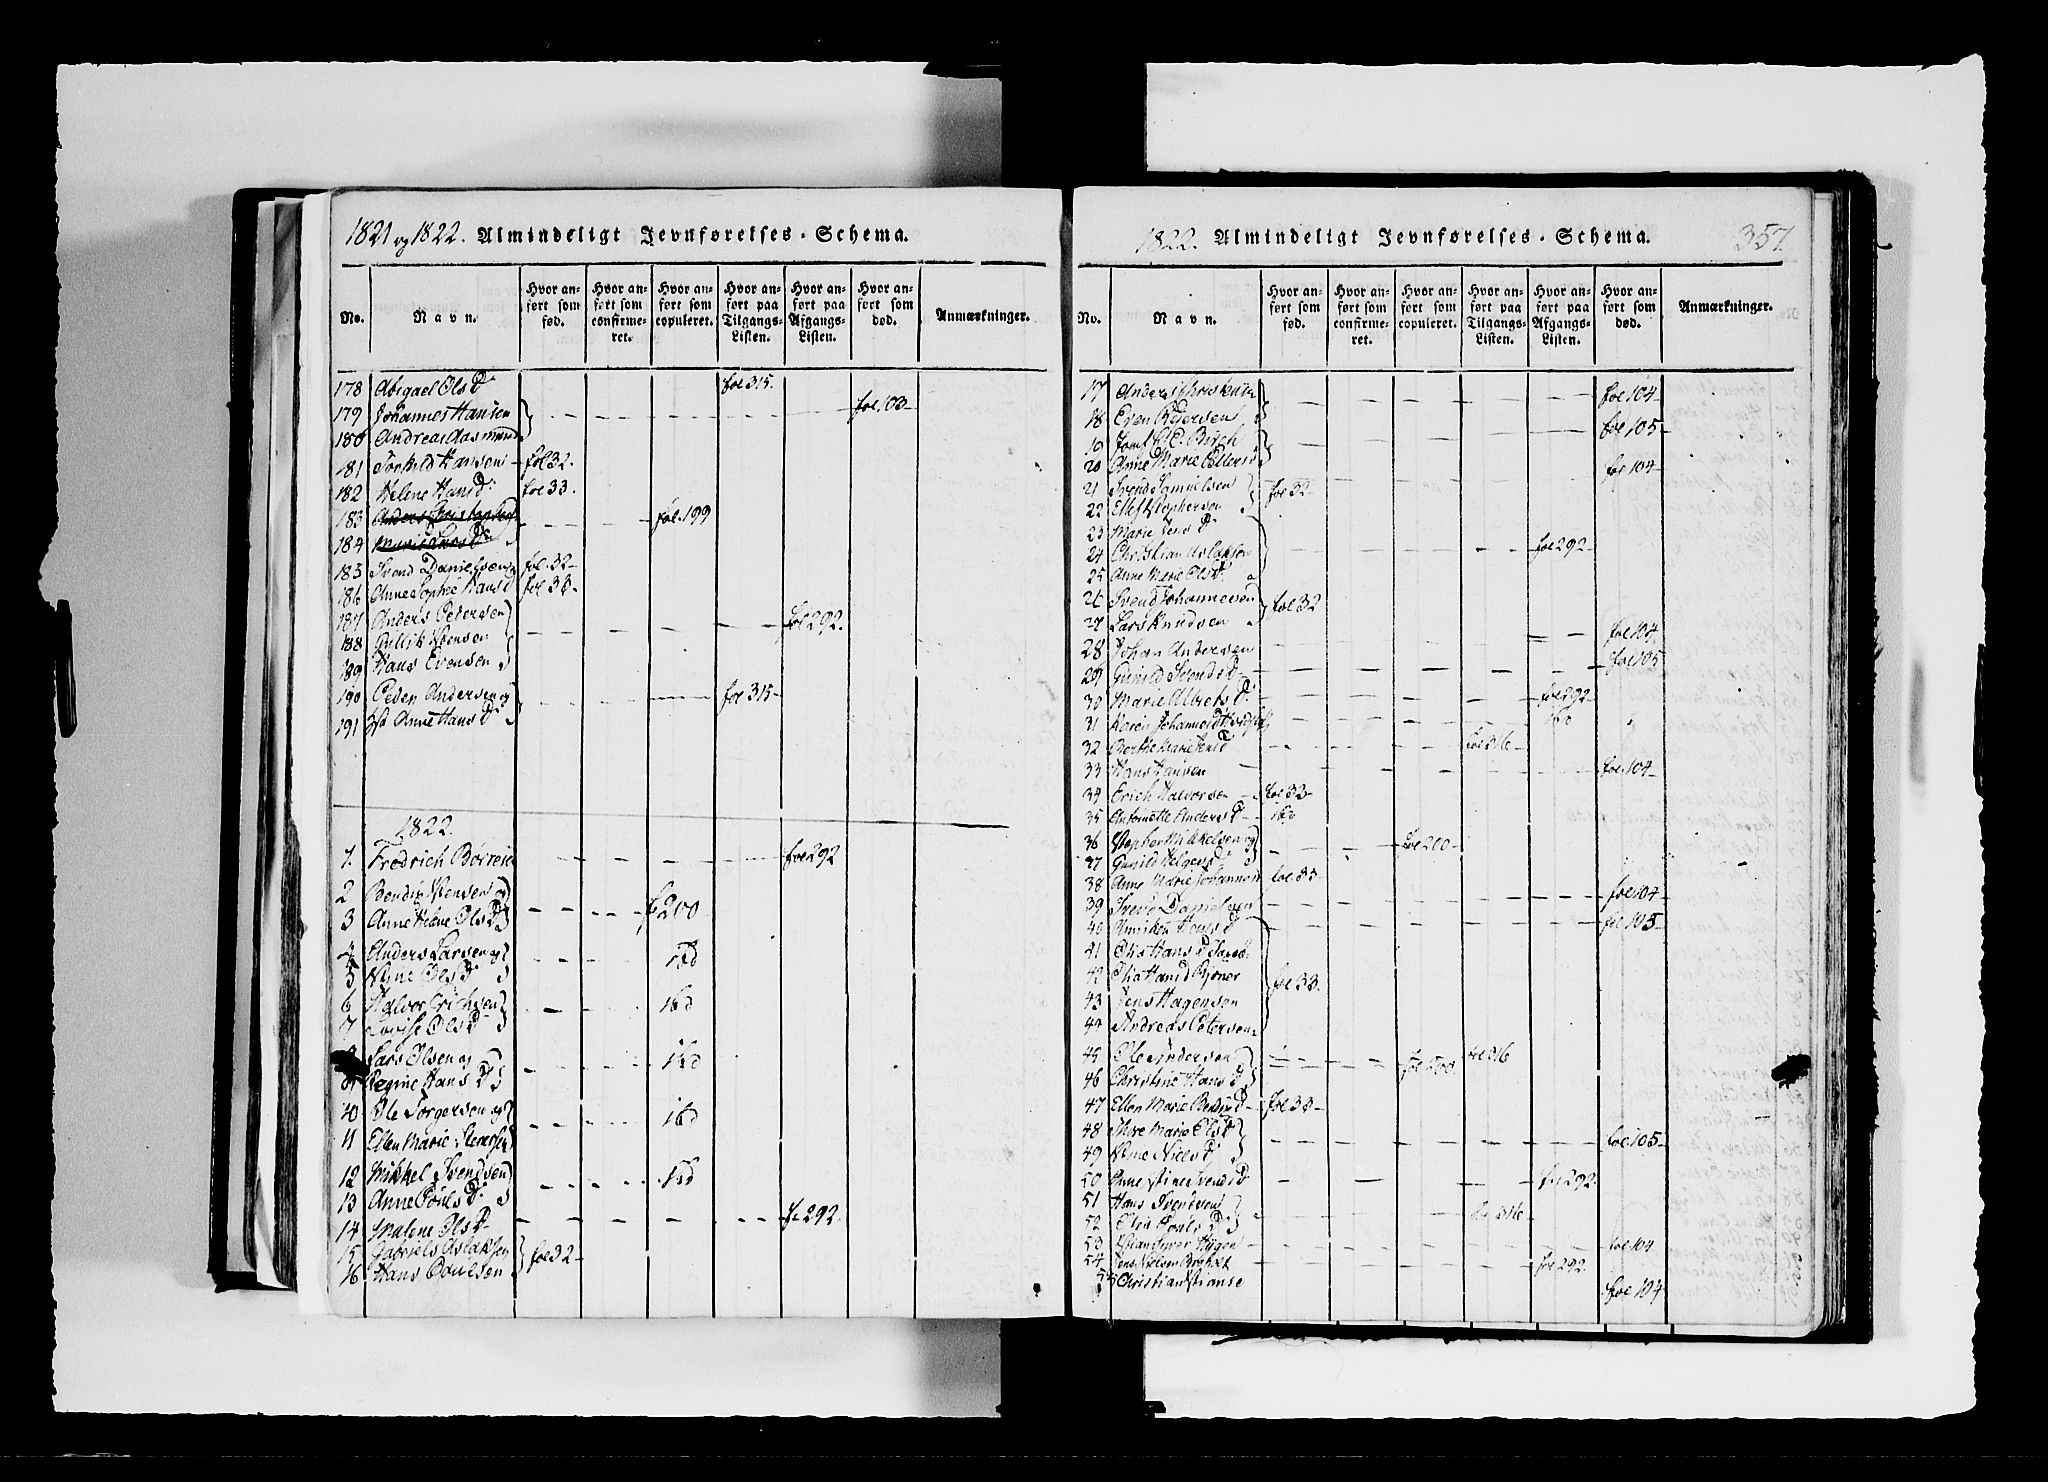 1821 og 1822. Almindeligt Jevnførelses-Schema.
No.
Navn.
Hvor anført som fød.
Hvor anført som confirmeret.
Hvor anført som copuleret.
Hvor anført paa Tilgangs-Listen.
Hvor anført paa Afgangs-Listen.
Hvor anført som død.
Anmærkninger.
178 Abigael Ols D. fol 315.
179 Johannes Hansen fol. 103
180 Andreas Aasmund
181 Torkild Hansen fol 32.
182 Helene Hans D. fol 33.
183 Anders Christophers fol. 199
184 Marie Lars D.
185 Svend Danielsen fol. 32
186 Anne Sophie Hans D fol 33.
187 Anders Pedersen fol 292.
188 Gullik
189 Hans Evensen
190 Peder Andersen og fol 315
191 Anne Hans D.
1822.
1. Fredrich Børresen fol 292
2 Bendix og
3 Anne Helene Ols D f 200
4 Anders Larsen og ibd
5 Ols D
6 Halvor Erichsen ibd
7 Lovise Ols D
8 Lars Olsen og ibd
9 Regine Hans D
10 Ole Torgersen og ibd
11 Ellen Marie
12 Mikkel Svendsen ibd
13 Anne Pouls D.
14 Malene Ols D f 292.
15 Gabriels Aslaksen fol 32
16 Hans Poulsen
1822. Almindeligt Jevnførelses-Schema. 357
No.
Navn.
Hvor anført som fød.
Hvor anført som confirmeret.
Hvor anført som copuleret.
Hvor anført paa Tilgangs-Listen.
Hvor anført paa Afgangs-Listen.
Hvor anført som død.
Anmærkninger.
17 Anders Christensen fol 104
18 Even Pedersen
19 Birch fol 105
20 Anne Marie fol 104
21 Svend Samuelsen fol 32
22 Ellef
23 Marie Jens D
24 Christian Aslaksen fol 292
25 Anne Marie Ols D.
26 Svend Johannesen fol 32
27 Lars Knudsen fol 104
28 Johan Andersen
29 Gunild Svends D fol 105
30 Marie Albrets D. fol 292
31 Karen ibd
32 Berthe Marie Jens D fol 316
33 Hans Hansen fol. 104
34 Erich Halvorsen fol 33
35 Antonette Anders D ibd
36 Mikkelsen og fol 200
37 Gunild Helges D
38 Anne Marie Johannes fol 33
39 Svend Danielsen fol 104
40 Anniken D fol 105
41 Hans D
42 Hans D
43 Jens Hagensen fol 33.
44 Andreas Petersen
45 Ole Andersen fol 316
46 Christine Hans D fol 200
47 Ellen Marie D fol 33
48 Marie Ols D fol 105
49 Niels D
50 Anne Stine Svends D fol 292
51 Hans Svendsen fol 316
52 Pouls D
53 Hygen fol 104
54 Jens Nielsen fol 292.
55 Christian fol 104